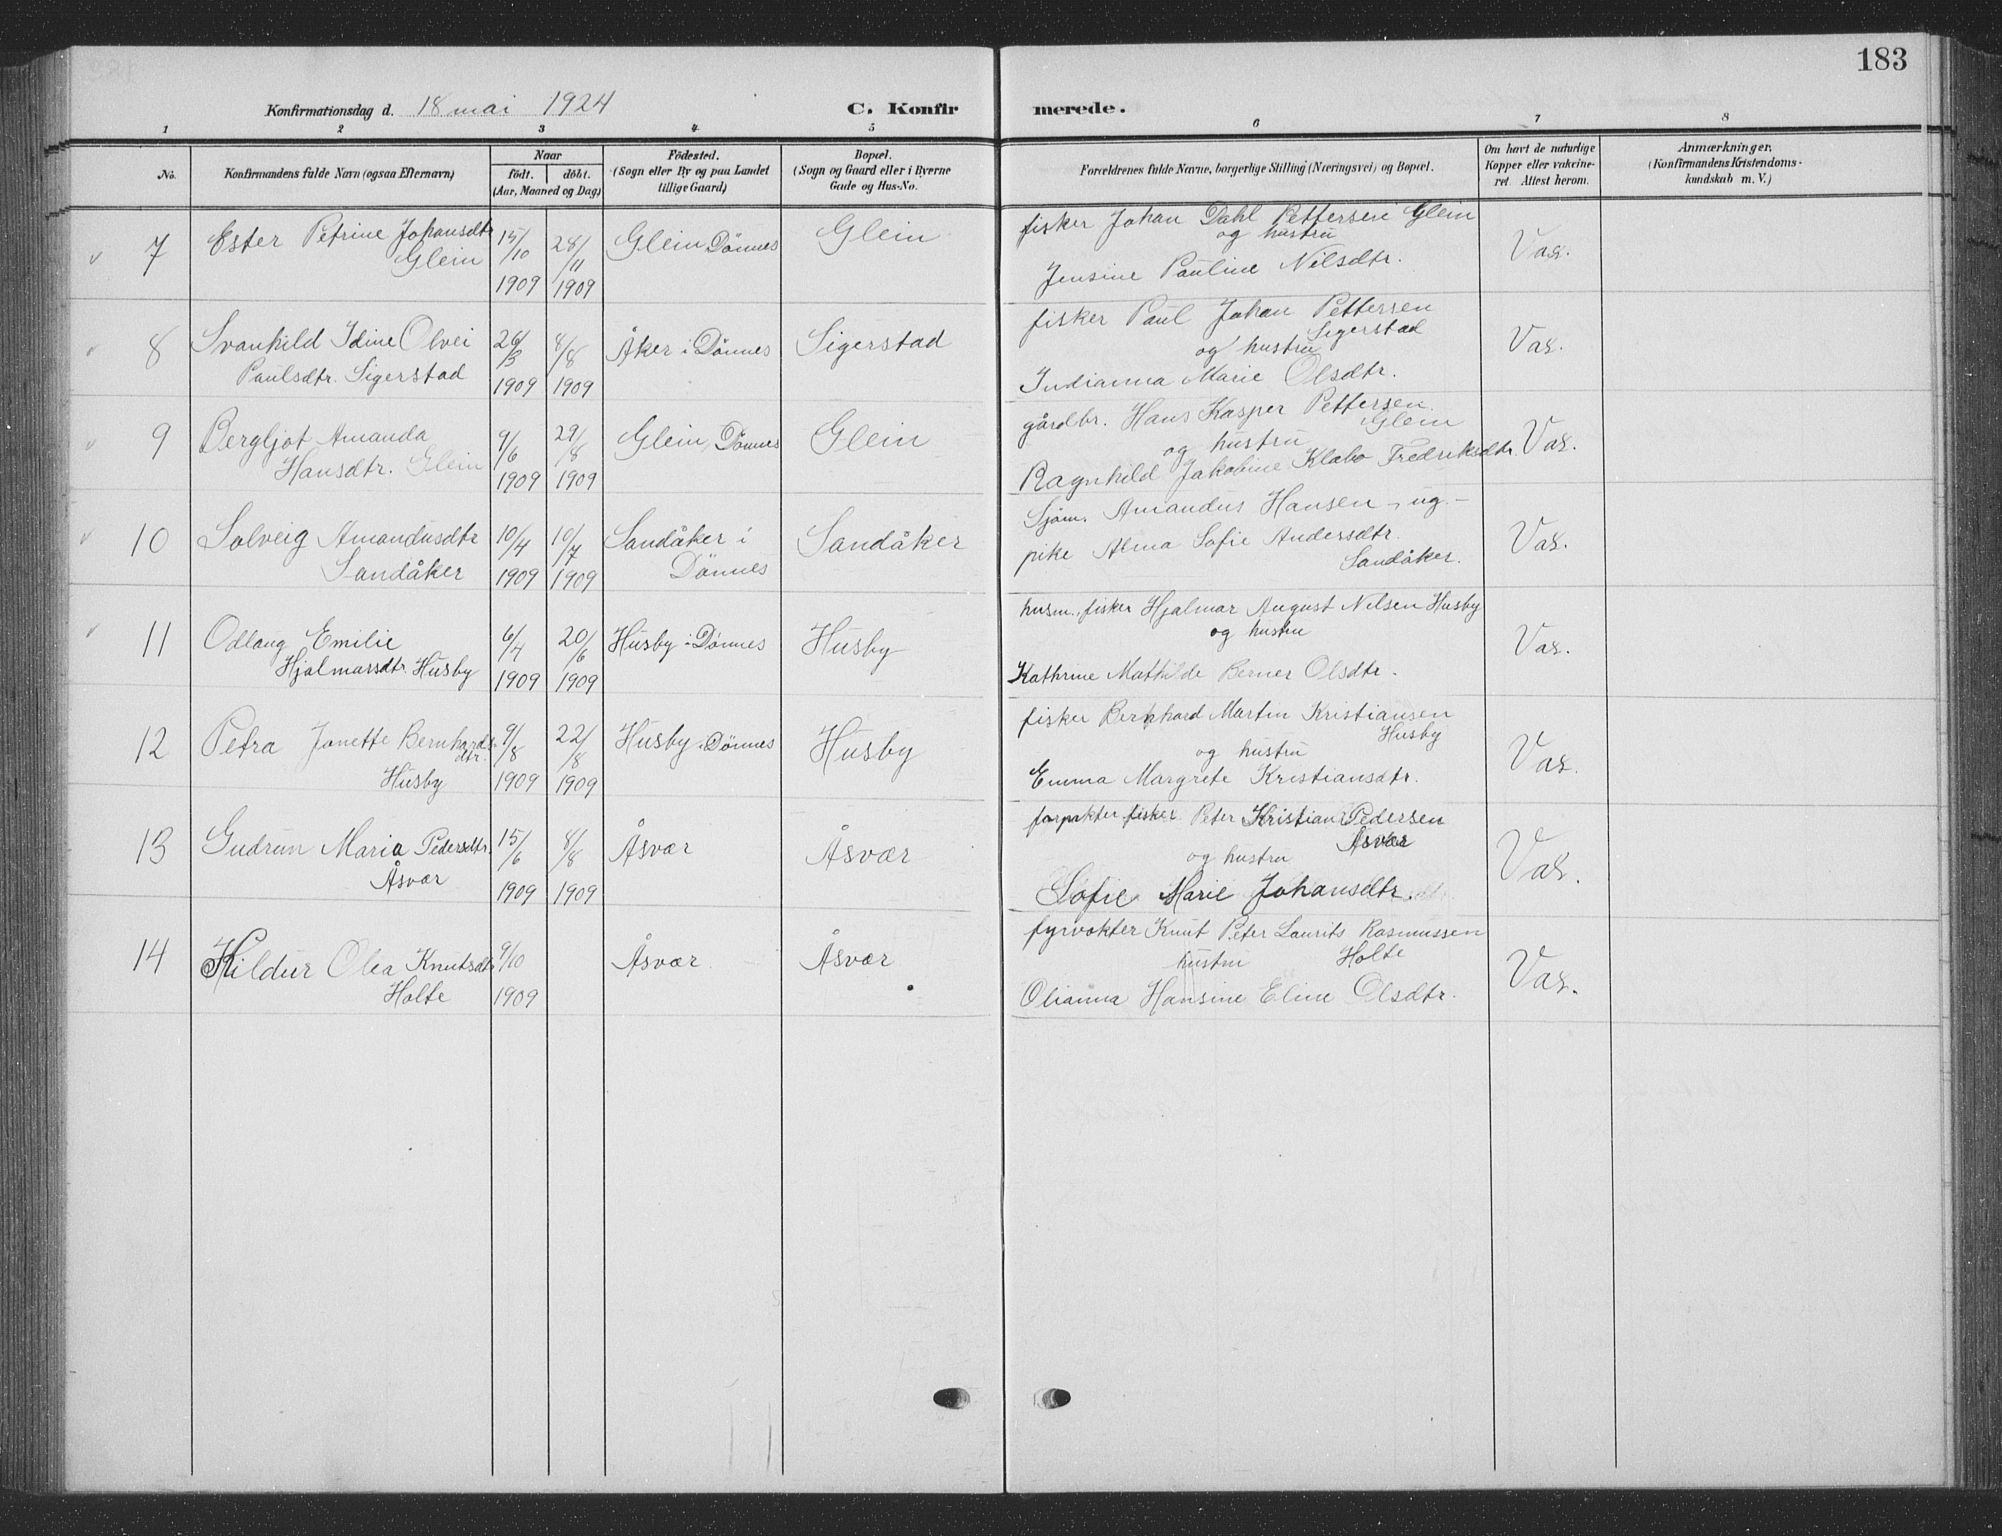 183
Konfirmationsdag d. 18 mai 1924 C. Konfir merede.
1 2 3 4 5 6 7 8
No. Konfirmandens fulde Navn (ogsaa Efternavn) Naar födt. döbt. (Aar, Maaned og Dag) Födested. (Sogn eller By og paa Landet tillige Gaard) Bopæl. (Sogn og Gaard eller i Byerne Gade og Hus-No. Forældrenes fulde Navne, borgerlige Stilling (Næringsvei) og Bopæl. Om havt de naturlige Kopper eller vakcineret. Attest herom. Anmærkninger. (Konfirmandens Kristendomskundskab m. V.)
7 Ester Petrine Johansdtr 15/10 28/11 Glein, Dønnes Glein fisker Johan Dahl Pettersen Glein Vax.
Glein og hustru
1909 1909 Jensine Pauline Nilsdtr.
8 Svanhild Idine Olvei 26/3 8/8 Åker i Dønnes Sigerstad fisker Paul Johan Pettersen Vax.
Sigerstad
og hustru
Paulsdtr. Sigerstad 1909 1909 Indianna Marie Olsdtr.
9 Bergljot Amanda 9/6 29/8 Glein, Dønnes Glein gårdbr. Hans Kasper Pettersen Vax.
Glein
og hustru
Hansdtr. Glein 1909 1909 Ragnhild Jakobine Klabo Fredriksdtr.
10 Solveig Amandusdtr 10/4 10/7 Sandåker i Sandåker Sjøm. Amandus Hansen - ug. - Vax.
pike Alma Sofie Andersdtr.
Sandåker 1909 1909 Dønnes Sandåker.
11 Odlaug Emilie 6/4 20/6 Husby i Dønnes Husby husm. fisker Hjalmar August Nilsen Husby Vax.
og hustru
Hjalmarsdtr. Husby 1909 1909 Kathrine Mathilde Berner Olsdtr.
12 Petra Jonette Bernhards- 9/8 22/8 Husby i Dønnes Husby fisker Bernhard Martin Kristiansen Vax.
dtr. Husby
og hustru
Husby 1909 1909 Emma Margrete Kristiansdtr.
13 Gudrun Maria Pedersdtr. 15/6 8/8 Åsvær Åsvær forpakter fisker Peter Kristian Pedersen Vax.
Åsvær
Åsvær og hustru
1909 1909 Sofie Marie Johansdtr.
14 Hildur Olea Knutsdtr 9/10 Åsvær Åsvær fyrvokter Knut Peter Laurits Rasmussen Vax.
hustru Holte
Holte 1909 Olianna Hansine Eline Olsdtr.